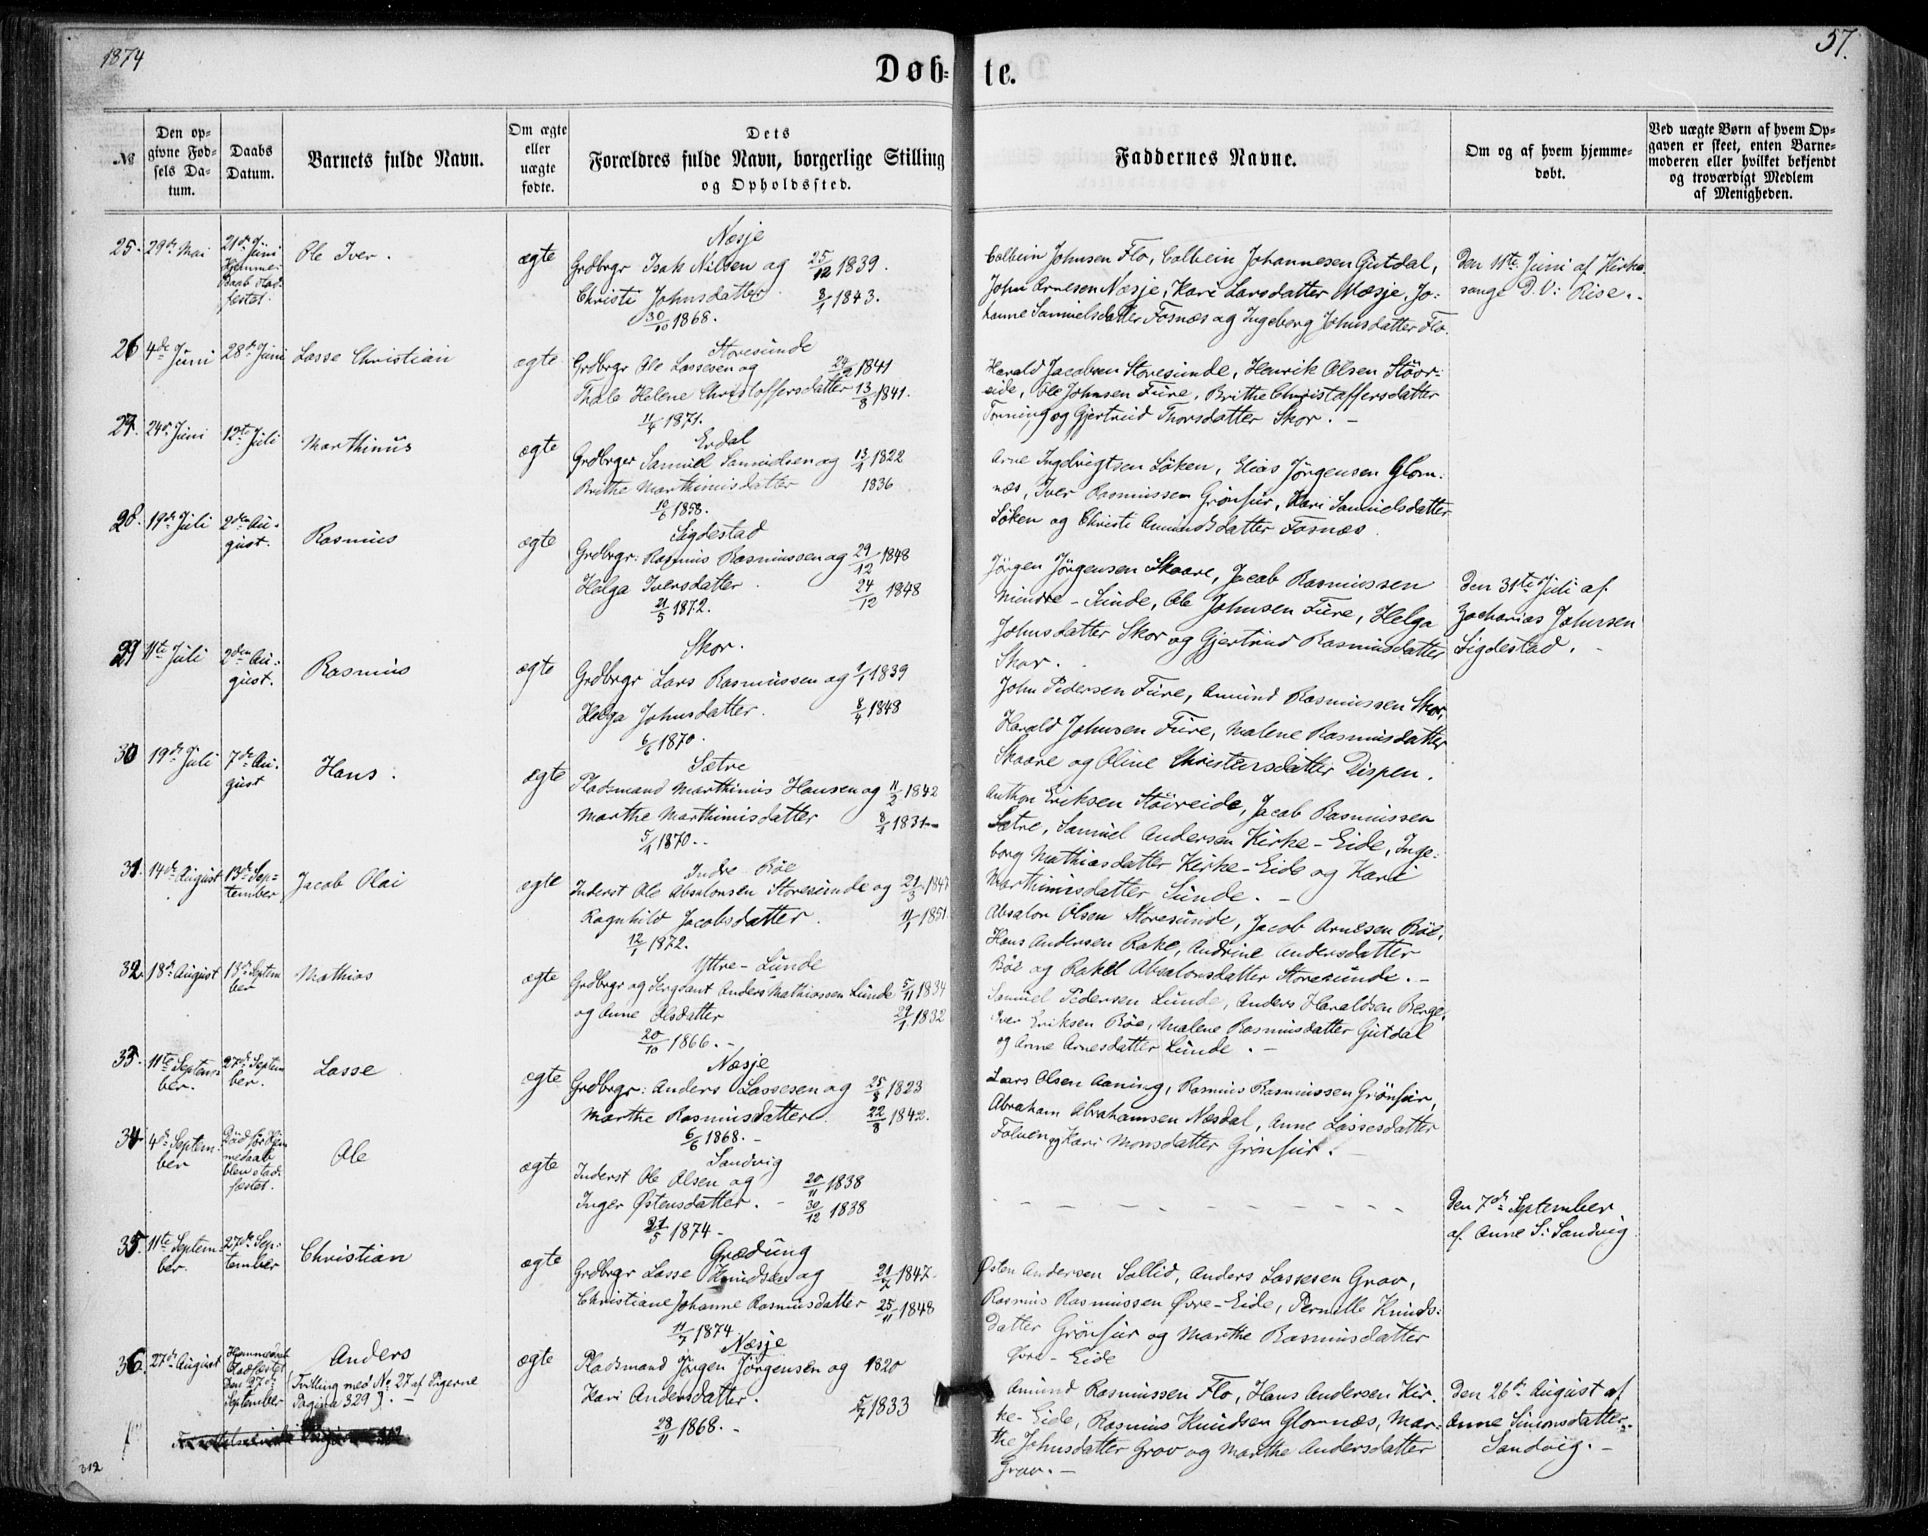 1874
57.
Døb-
te.
№
Den op-
givne Fød-
sels Da-
tum.
Daabs
Datum.
Barnets fulde Navn.
Om ægte
eller
uægte
fødte.
Dets
Forældres fulde Navn, borgerlige Stilling
og Opholdssted.
Faddernes Navne.
Om og af hvem hjemme-
døbt.
Ved uægte Børn af hvem Op-
gaven er skeet, enten Barne-
moderen eller hvilket bekjendt
og troværdigt Medlem
af Menigheden.
25. 29de Mai
21de Juni
Hjemme-
Daab stad-
festet.
Ole Iver.
ægte
Næsje
Grdbrgr Isak Nilsen og 25/12 1839.
Christi Johnsdatter 8/1 1843.
30/10 1868.
Colbein Johnsen Flo, Colbein Johannesen Gutdal,
John Arnesen Næsje, Kari Larsdatter Næsje, Jo-
hanne Samuelsdatter Fosnæs og Ingeborg Johnsdatter Flo.
Den 11te Juni af Kirke
sange D. O: Rise.
26 4de Juni 28de Juni
Lasse Christian
ægte
Storesunde
Grdbrgr Ole Lassesen og 1841
Thale Helene Christoffersdatter 13/8 1841.
11/4 1871.
Harald Jacobsen Storesunde, Henrik Olsen Stöor-
eide, Ole Johnsen Fure, Brithe Christaffersdatter
Tonning og Gjertrud Thorsdatter Skor. -
27. 24de Juni 12te Juli
Marthinus
ægte
Erdal
Grdbrger Samuel Samuelsen og 13/1 1822
Brithe Marthinisdatter 1836
10/6 1858.
Arne Ingebrigtsen Löken, Elias Jörgensen Glom-
næs, Iver Rasmussen Grönfur, Kari Samuelsdatter
Löken og Christi Amundsdatter Fosnæs.
28. 19de Juli
2den Au-
gust.
Rasmus
ægte
Sigdestad
Grdbrgr: Rasmus Rasmussen og 29/12 1848
Helga Iversdatter. 24/12 1848
21/5 1872.
Jörgen Jörgensen Skaare, Jacob Rasmussen
Mindre-Sunde, Ole Johnsen Fure, Helga
Johnsdatter Skor og Gjertrud Rasmusdatter
Skor.
Den 31te Juli af
Zacharias Johnsen
Sigdestad.
29 11te Juli
2den Au-
gust.
Rasmus
ægte
Skor.
Grdbrgr Lars Rasmussen og 1839
Helga Johnsdatter. 8/4 1848
6/6 1870.
John Pedersen Fure, Amund Rasmussen Skor,
Harald Johnsen Fure, Malene Rasmusdatter
Skaare og Oline Christensdatter Dispen.
30 19de Juli
7de Au-
gust
Hans.
ægte
Sætre
Pladsmand Marthinus Hansen og 11/2 1842
Marthe Marthinisdatter 8/1 1831
5/1 1870.
Anthon Eriksen Stöireide, Jacob Rasmussen
Sætre, Samuel Andersen Kirke-Eide, Inge-
borg Mathiasdatter Kirke-Eide og Kari
Marthinisdatter Sunde. -
31. 14de August
13de Sep-
tember
Jacob Olai
ægte
Indre Böe
Inderst Ole Absalonsen Storesunde og 21/3 1847
Ragnhild Jacobsdatter. 11/1 1851.
12/1 1872.
Absalon Olsen Storesunde, Jacob Arnesen Böe,
Hans Andersen Rake, Andrine Andersdatter
Böe og Rakel Absalonsdatter Storesunde. -
32. 18de August
13de Septem
ber
Mathias
ægte
Yttre-Lunde
Grdbrgr og Sergeant Anders Mathiassen Lunde 5/11 1834
og Anne Olsdatter 29/1 1832
20/10 1866. -
Samuel Pedersen Lunde, Anders Haraldsen Berge,
Iver Eriksen Böe, Malene Rasmusdatter Gutdal
og Anne Arnesdatter Lunde. -
33. 11te Septem-
ber.
27de Septem
ber.
Lasse
ægte
Næsje
Grdbrgr: Anders Lassesen og 25/8 1823
Marthe Rasmusdatter. 22/8 1842.
6/6 1868. -
Lars Olsen Aaning, Rasmus Rasmussen Grönfur,
Abraham Abrahamsen Næsdal, Anne Lassesdatter
Folven og Kari Monsdatter Grönfur.
34. 4de Septem-
ber
Död för Hjem
medaab
blev stad-
fæstet.
Ole
ægte
Sandvig
Inderst Ole Olsen og 20/11 1838
Inger Østensdatter. - 30/12 1838
21/5 1874 -
Den 7de September
af Anne S: Sandvig
35. 11te Septem-
ber.
27de Sep-
tember
Christian
ægte
Grædung
Grdbrgr Lasse Knudsen og 21/7 1847.
Christiane Johanne Rasmusdatter 25/11 1848
11/7 1874
Østen Andersen Sollid, Anders Lassesen Grov,
Rasmus Rasmussen Øvre-Eide, Pernille Knuds-
datter Grönfur og Marthe Rasmusdatter
Øvre-Eide
36. 27de August
Hjemmedaab
Stadfæstet
Den 27de
September
Anders
(Tvilling med No 27 af Pigerne
Pagina 329). -
ægte
Næsje
Pladsmand Jörgen Jörgensen og 1820
Kari Andersdatter. 5/7 1833
28/11 1868. -
Amund Rasmussen Flo, Hans Andersen Kir-
ke-Eide, Rasmus Knudsen Glomnæs, Mar-
the Johnsdatter Grov og Marthe Andersdatter
Grov. -
Den 26de August af
Anne Simonsdatter
Sandvig. -
312